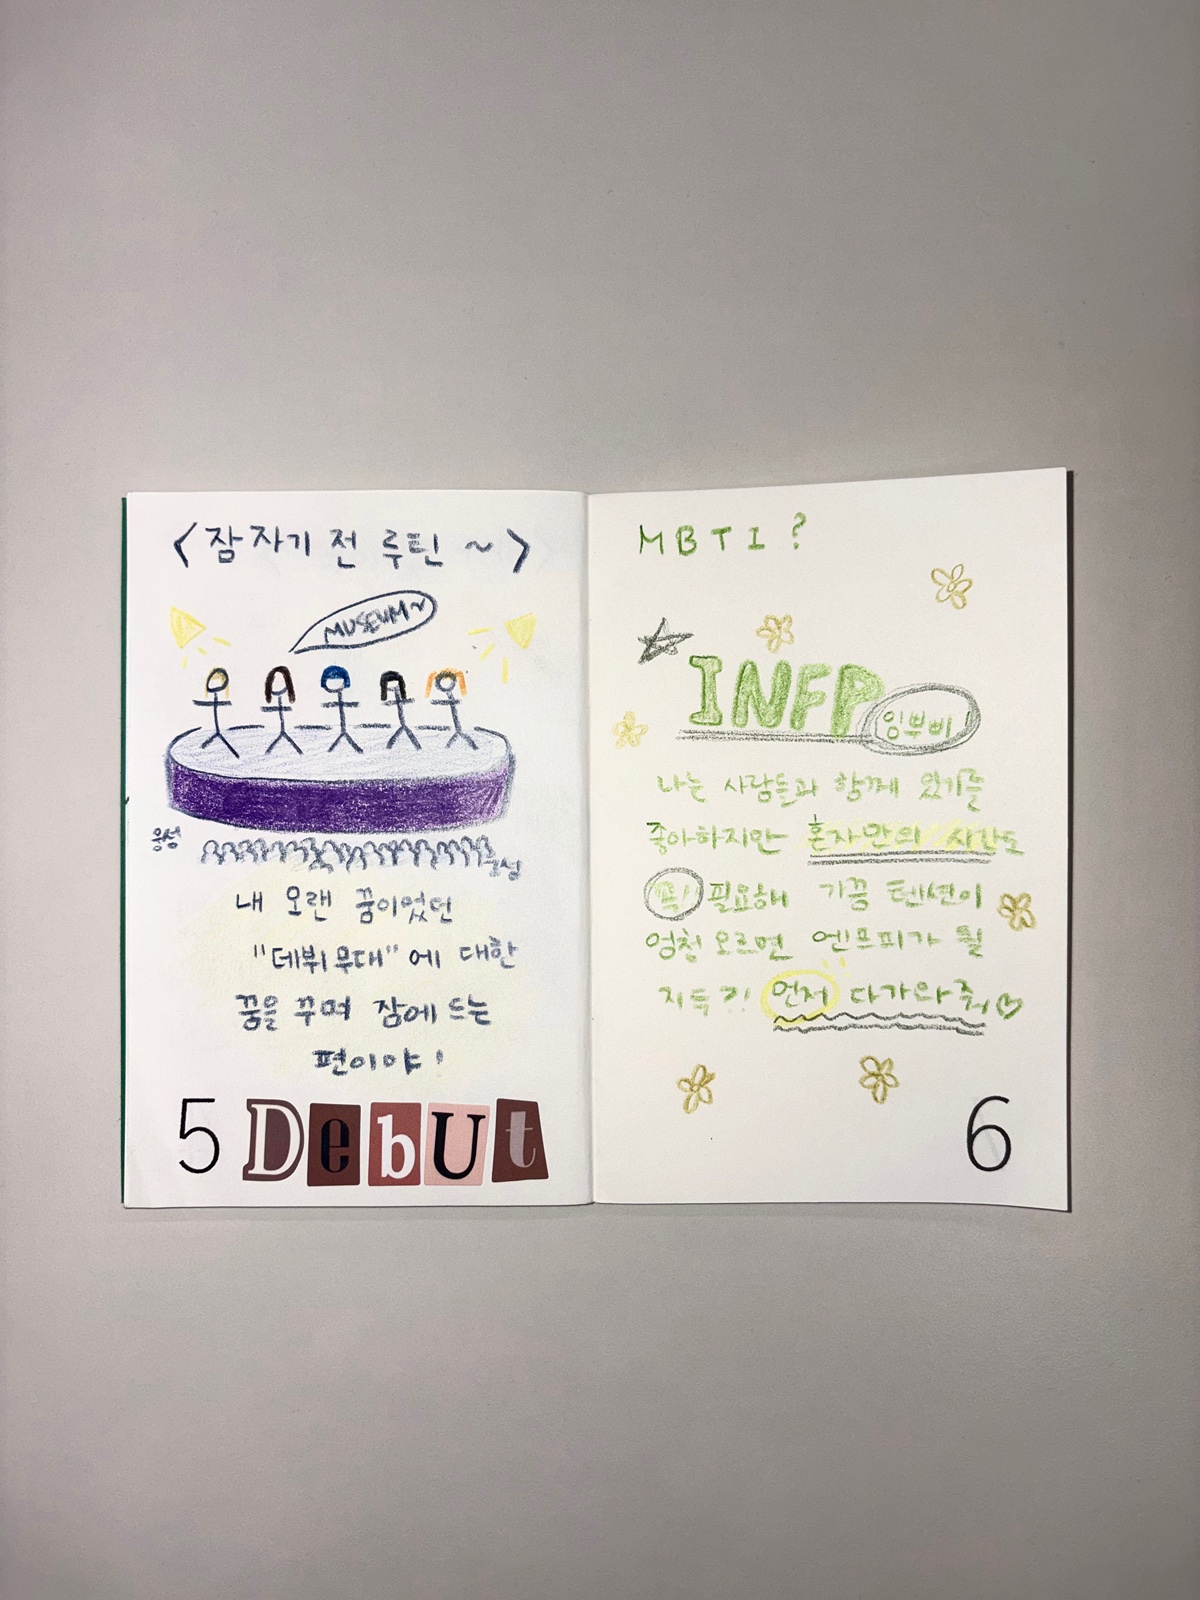 <잠자기 전 루틴 ~>
MUSEUM~
웅성
웅성
내 오랜 꿈이었던
"데뷔 무대"에 대한
꿈을 꾸며 잠에 드는
편이야!
5 DebUt
MBTI?
INFP
잉뿌삐!
나는 사람들과 함께 있기를
좋아하지만 혼자만의 시간도
꼭!! 필요해 가끔 텐션이
엄청 오르면 엔프피가 될
지두?! 먼저 다가와줘♡
6